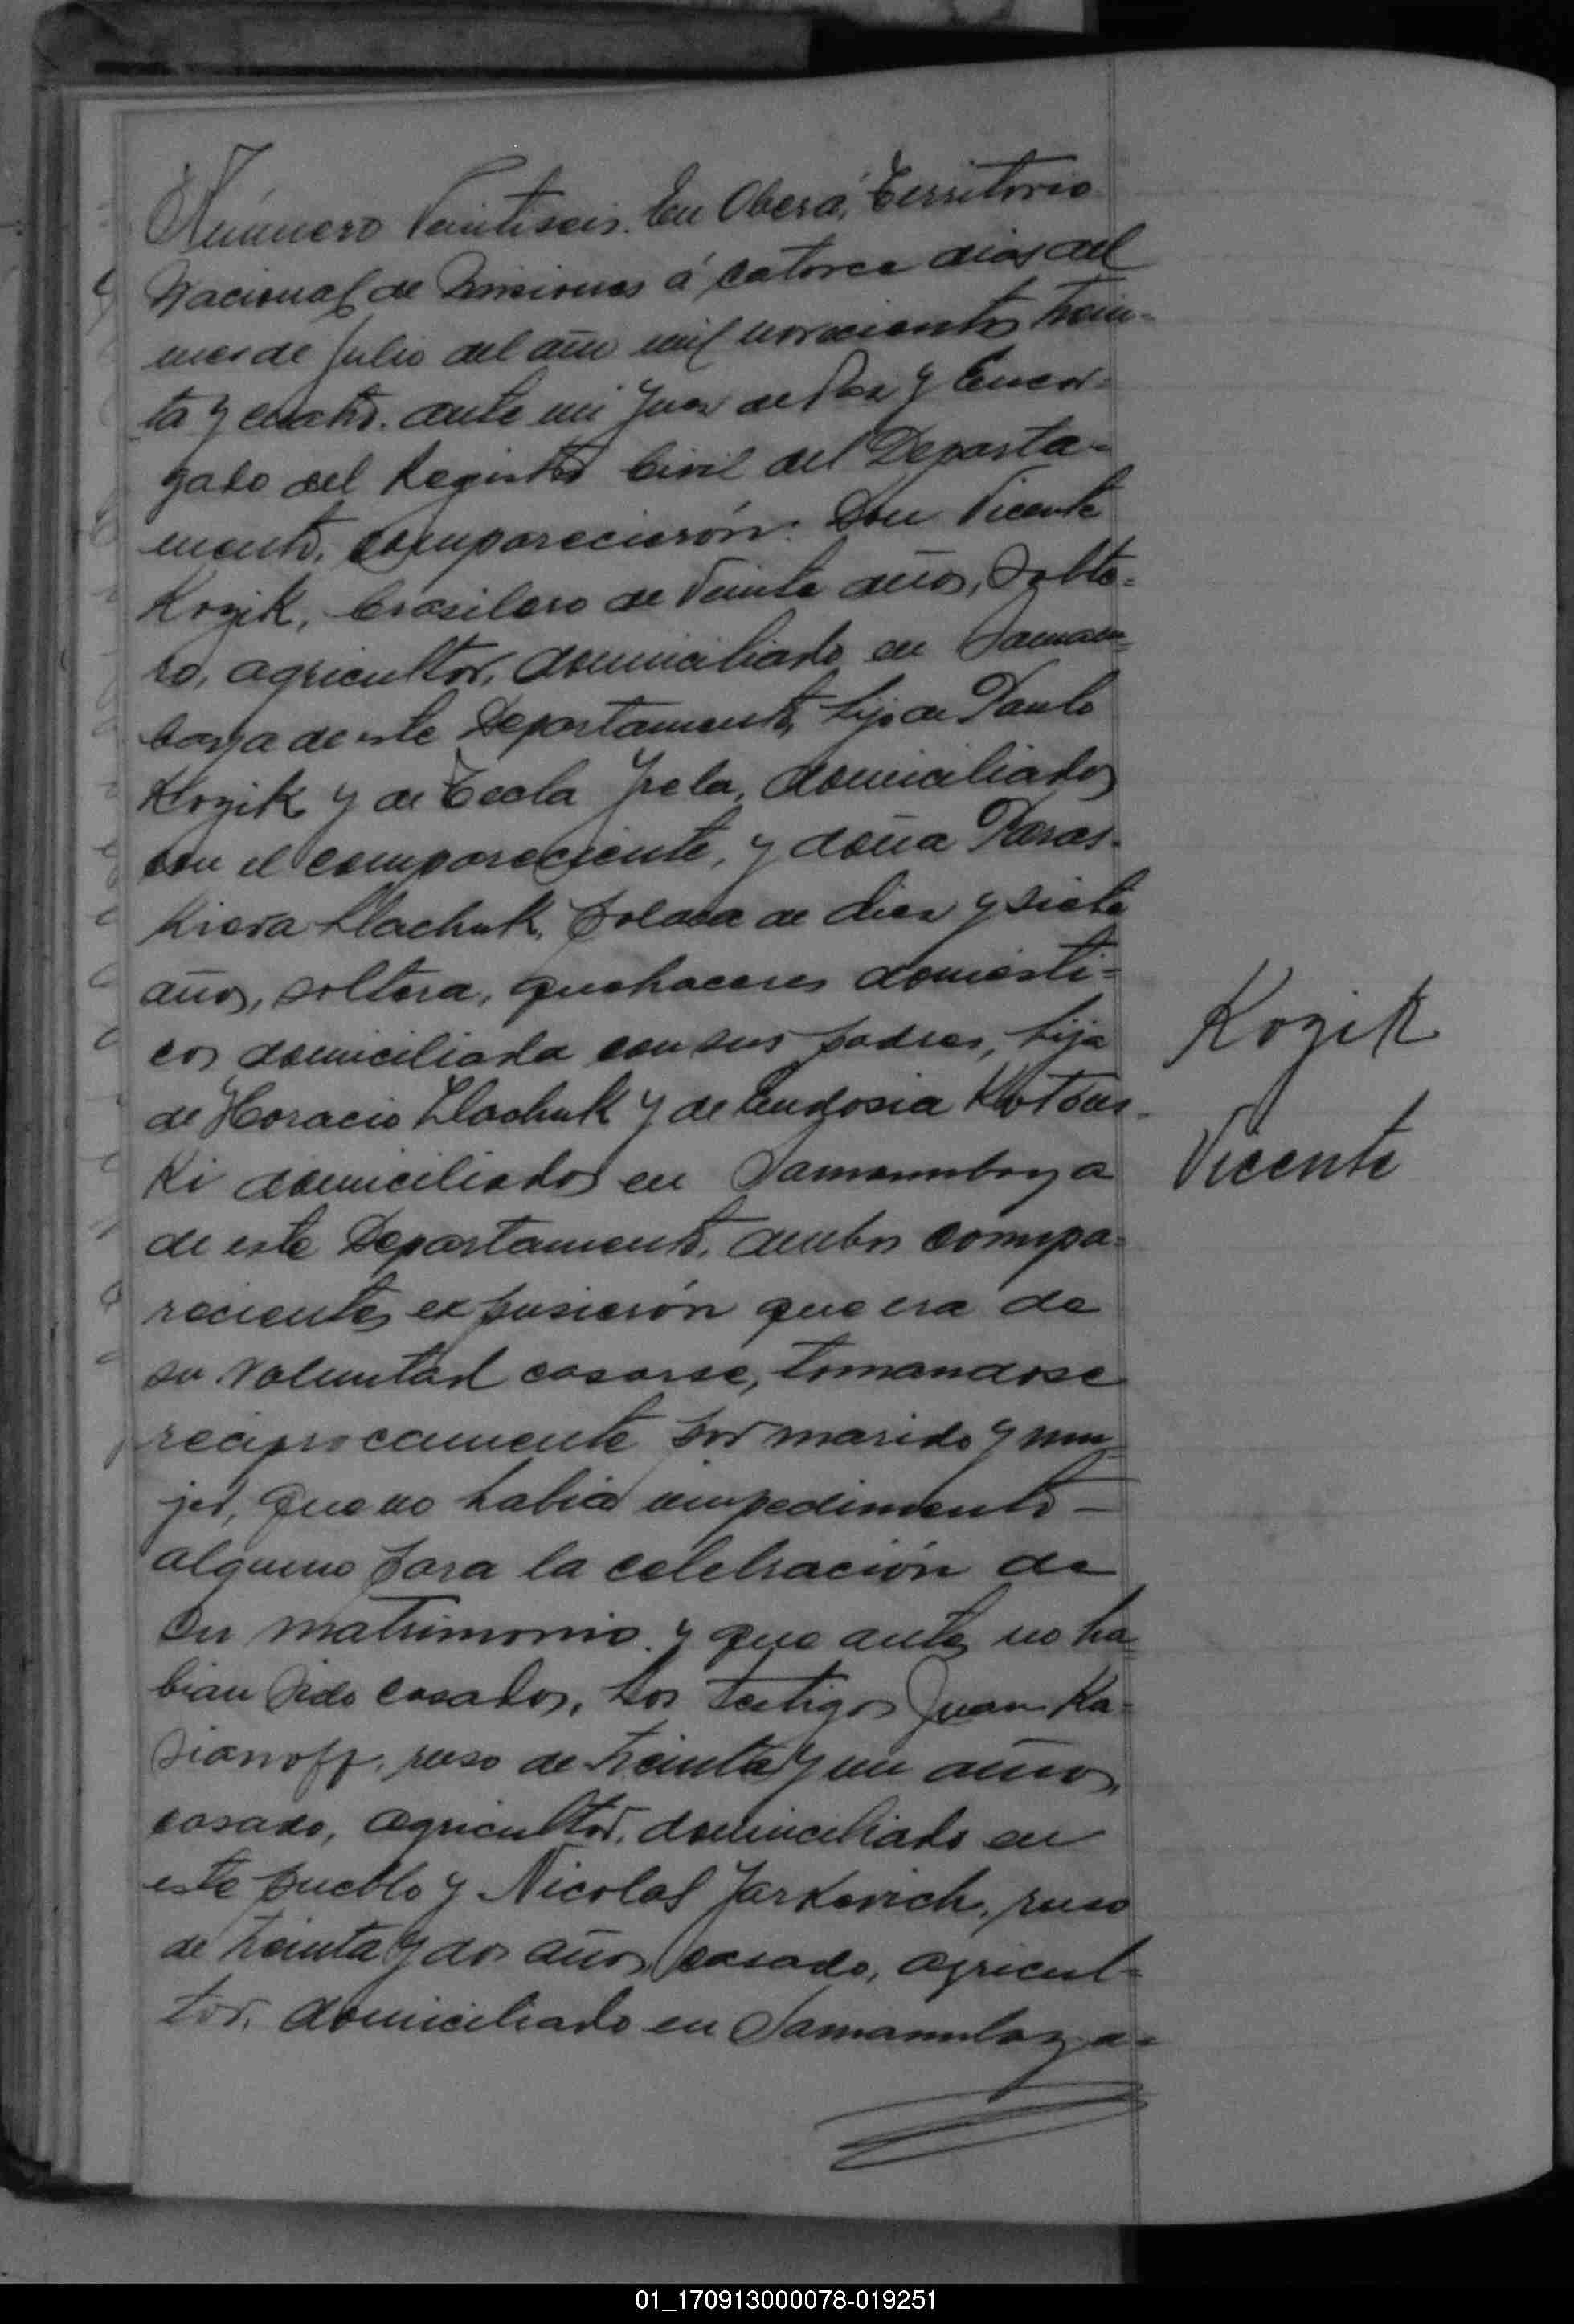 Número Veintiseis. En Oberá, Territorio
Nacional de Misiones á catorce dias del
mes de Julio del año mil novecientos trein-
ta y cuatro. ante mi Juez de Paz y Encar-
gado del Registro Civil del Departa-
mento, comparecierón: Don Vicente
Kozik, brasilero de Veinte años, Solte-
ro, agricultor, domiciliado en Samam-
baya de este Departamento, hijo de Paulo
Kozik y de Tecla Jrela, domiciliados
con el compareciente, y doña Paras-
kieva Llachuk, polaca de diez y siete
años, soltera, quehaceres domésti-
cos domiciliada con sus padres, hija
de Horacio Llachuk y de Eudosia
ki domiciliados en Samambaya
de este Departamento. ambos compa-
recientes expusierón que era de
su voluntad casarse, tomandose
reciprocamente por marido y mu-
jer, que no habia impedimento -
alguno para la celebración de
su matrimonio. y que antes no ha-
bian sido casados, Los testigos Juan Ka-
sianoff, ruso de treinta y un años,
casado, agricultor, domiciliado en
este pueblo y Nicolas Jarkevich, ruso
de treinta y dos años, casado, agricul-
tor, domiciliado en Samambaya-
Kozik
Vicente
01_170913000078-019251